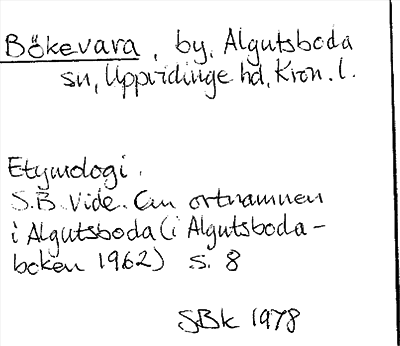 Bökevara, by, Algutsboda
sn, Uppvidinge hd, Kron. l.
Etymologi.
S.B. Vide. Om ortnamnen
i Algutsboda (i Algutsboda-
boken 1962) s. 8
SBk 1978